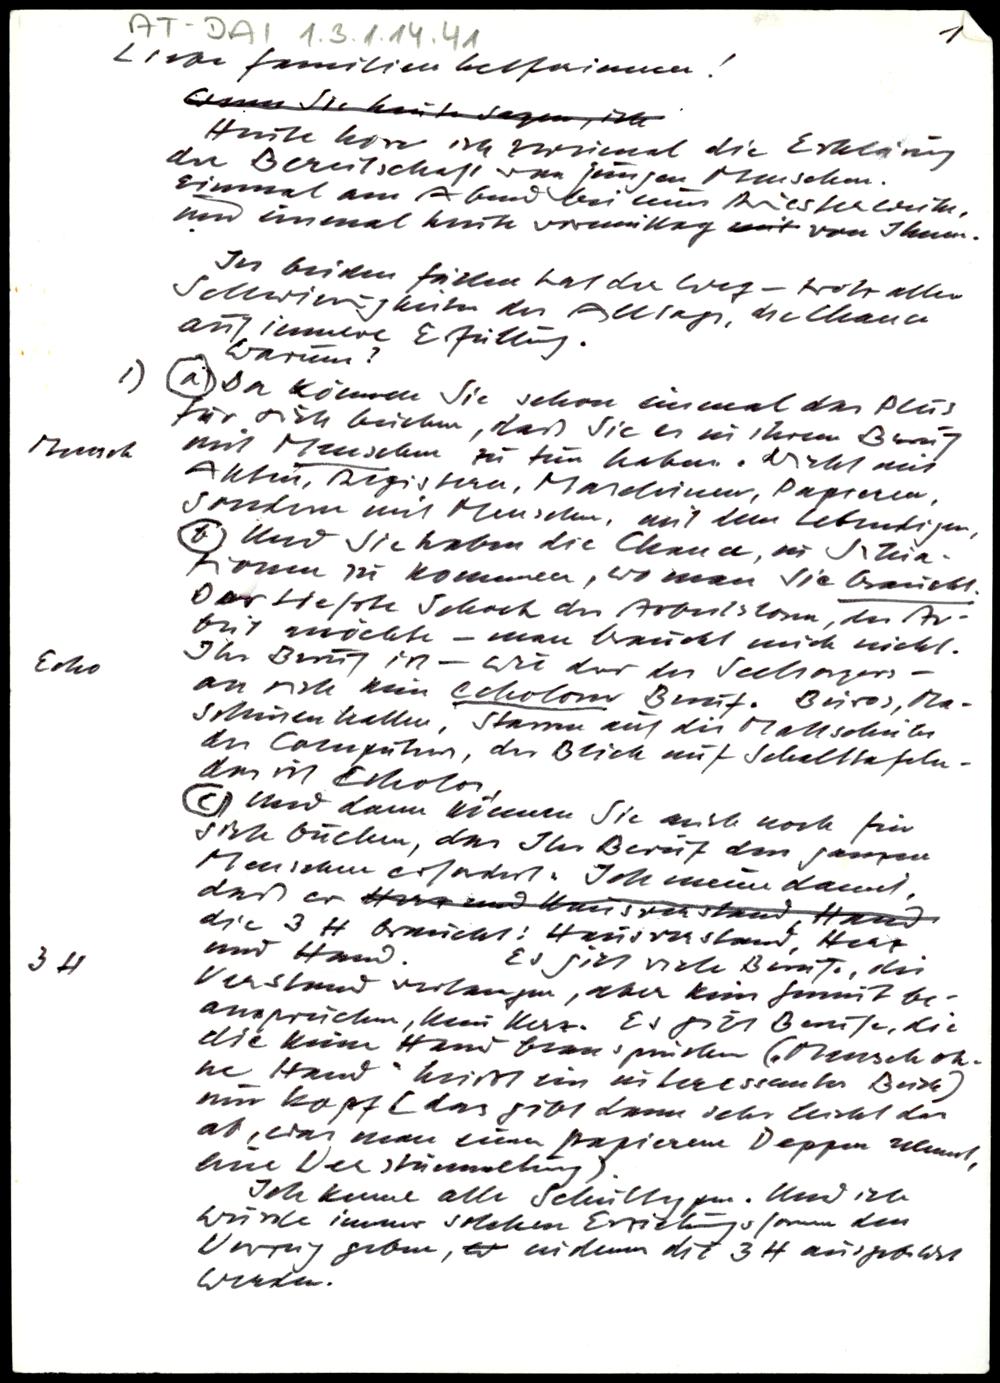 AT-DAI 1.3.1.14.41
1
Liebe Familienhelferinnen!
Wenn Sie heute sagen, ich
Heute höre ich zweimal die Erklärung
der Bereitschaft von jungen Menschen.
Einmal am Abend bei einer Priesterweihe,
und einmal heute vormittag mit von Ihnen.
In beiden Fällen hat der Weg – trotz aller
Schwierigkeiten des Alltags, die Chance
auf innere Erfüllung.
Warum?
1) a) Da können Sie schon einmal das Plus
für sich buchen, daß Sie es in Ihrem Beruf
Mensch
mit Menschen zu tun haben. Nicht mit
Akten, Registern, Maschinen, Papieren,
sondern mit Menschen, mit dem Lebendigen,
b) Und Sie haben die Chance, in Situa-
tionen zu kommen, wo man Sie braucht.
Der tiefste Schock des Arbeitslosen, der Ar-
beit möchte – man braucht mich nicht.
Echo
Ihr Beruf ist – wie der des Seelsorgers –
an sich kein echoloser Beruf. Büros, Ma-
schinenhallen, Starren auf die Mattscheibe
des Computers, der Blick auf Schalttafeln –
das ist Echolos.
c) Und dann können Sie auch noch für
sich buchen, das Ihr Beruf den ganzen
Menschen erfordert. Ich meine damit,
daß er Herz und Hausverstand, Hand
die 3 H braucht: Hausverstand, Herz
3 H
und Hand. Es gibt viele Berufe, die
Verstand verlangen, aber kein Gemüt be-
anspruchen, kein Herz. Es gibt Berufe, die
die keine Hand beanspruchen („Mensch oh-
ne Hand" heißt ein interessantes Buch)
nur Kopf (das gibt dann sehr leicht das
ab, was man einen papierenen Deppen nennt,
eine Verstümmelung).
Ich kenne alle Schultypen. Und ich
würde immer solchen Erziehungsformen den
Vorzug geben, in denen die 3 H ausgebildet
werden.